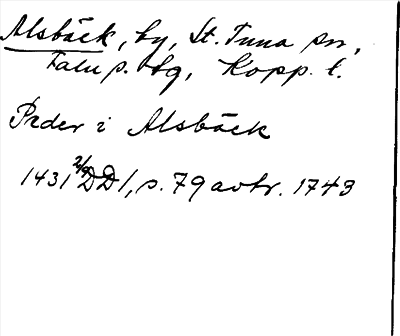 Alsbäck, by, St. Tuna sn,
Falu s. bg, Kopp. l.
Peder i Alsbäck
1431 2/9 DD 1, s. 79 avtr. 1743